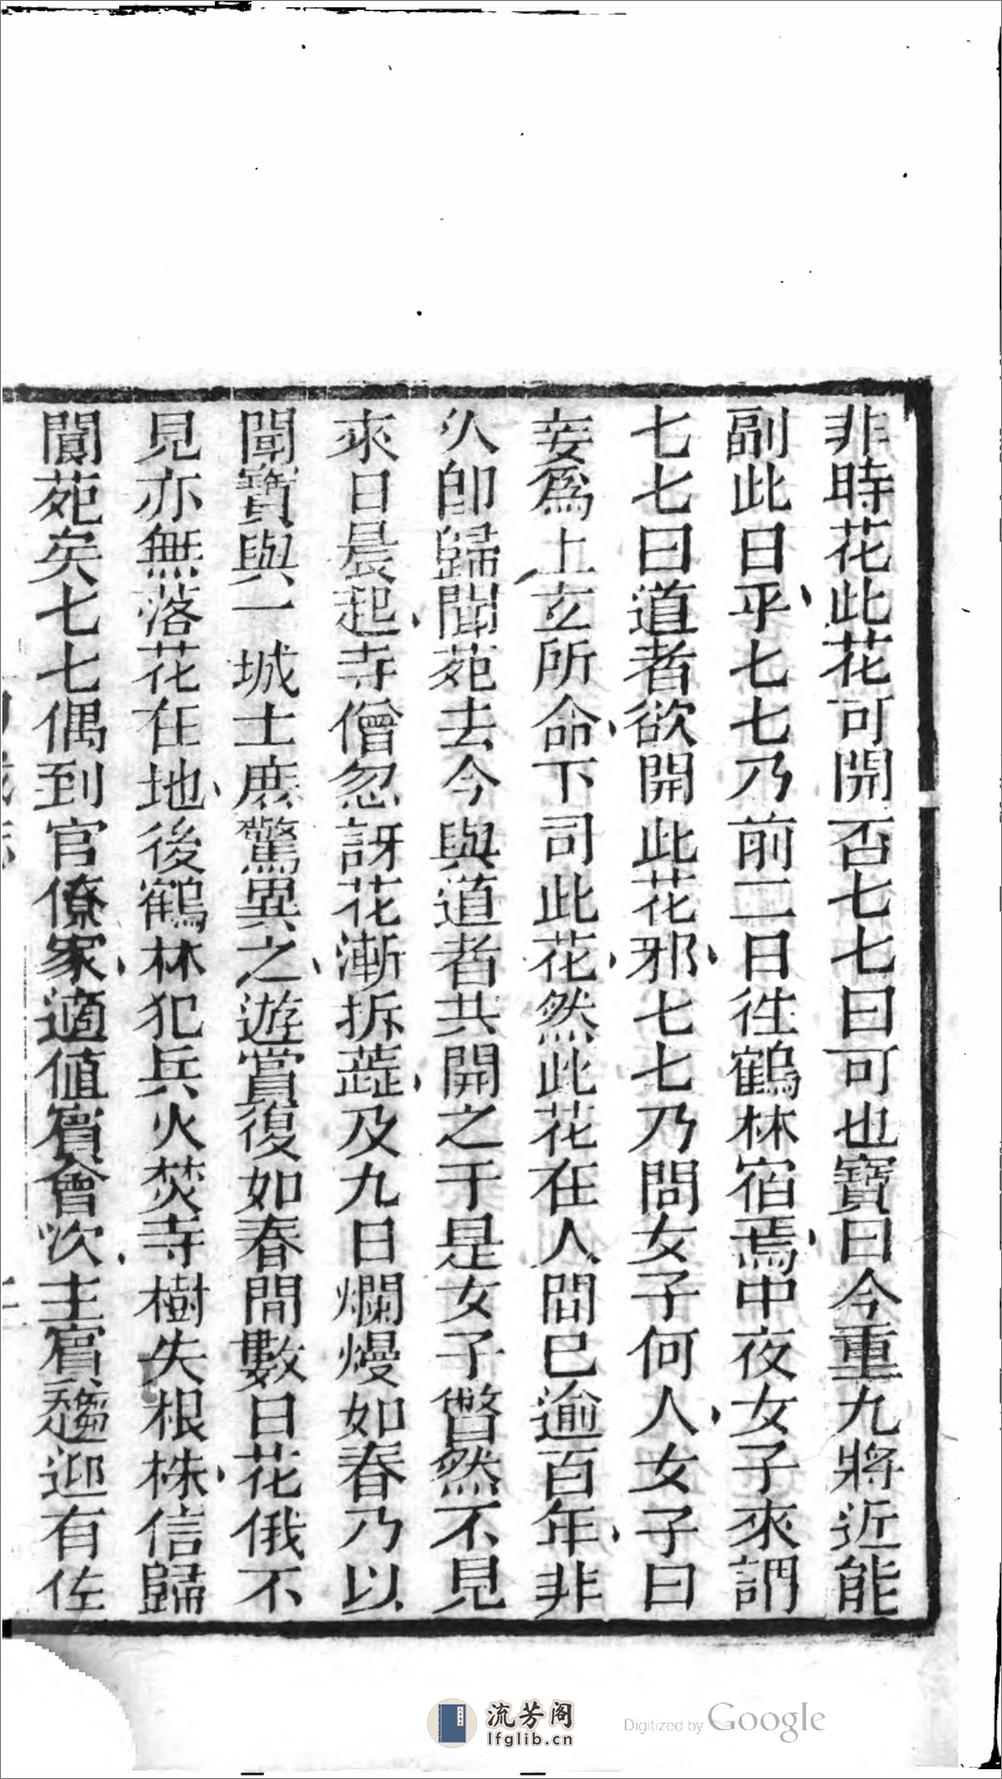 非時花此花可開否七七曰可也寶曰今重九將近能
副此日乎七七乃前二日徃鶴林宿焉中夜女子來謂
七七曰道者欲開此花邪七七乃問女子何人女子曰
妾爲上玄所命下司此花然此花在人間已逾百年非
久即歸閬苑去今與道者共開之于是女子瞥然不見
來日晨起寺僧忽訝花漸拆蕋及九日爛熳如春乃以
聞寶與一城士庶驚異之遊賞復如春間數日花俄不
見亦無落花在地後鶴林犯兵火焚寺樹失根株信歸
閬苑矣七七偶到官僚家適値賓會次主賓趨迎有佐
流芳阁
lfglib.cn
Digitized by Google